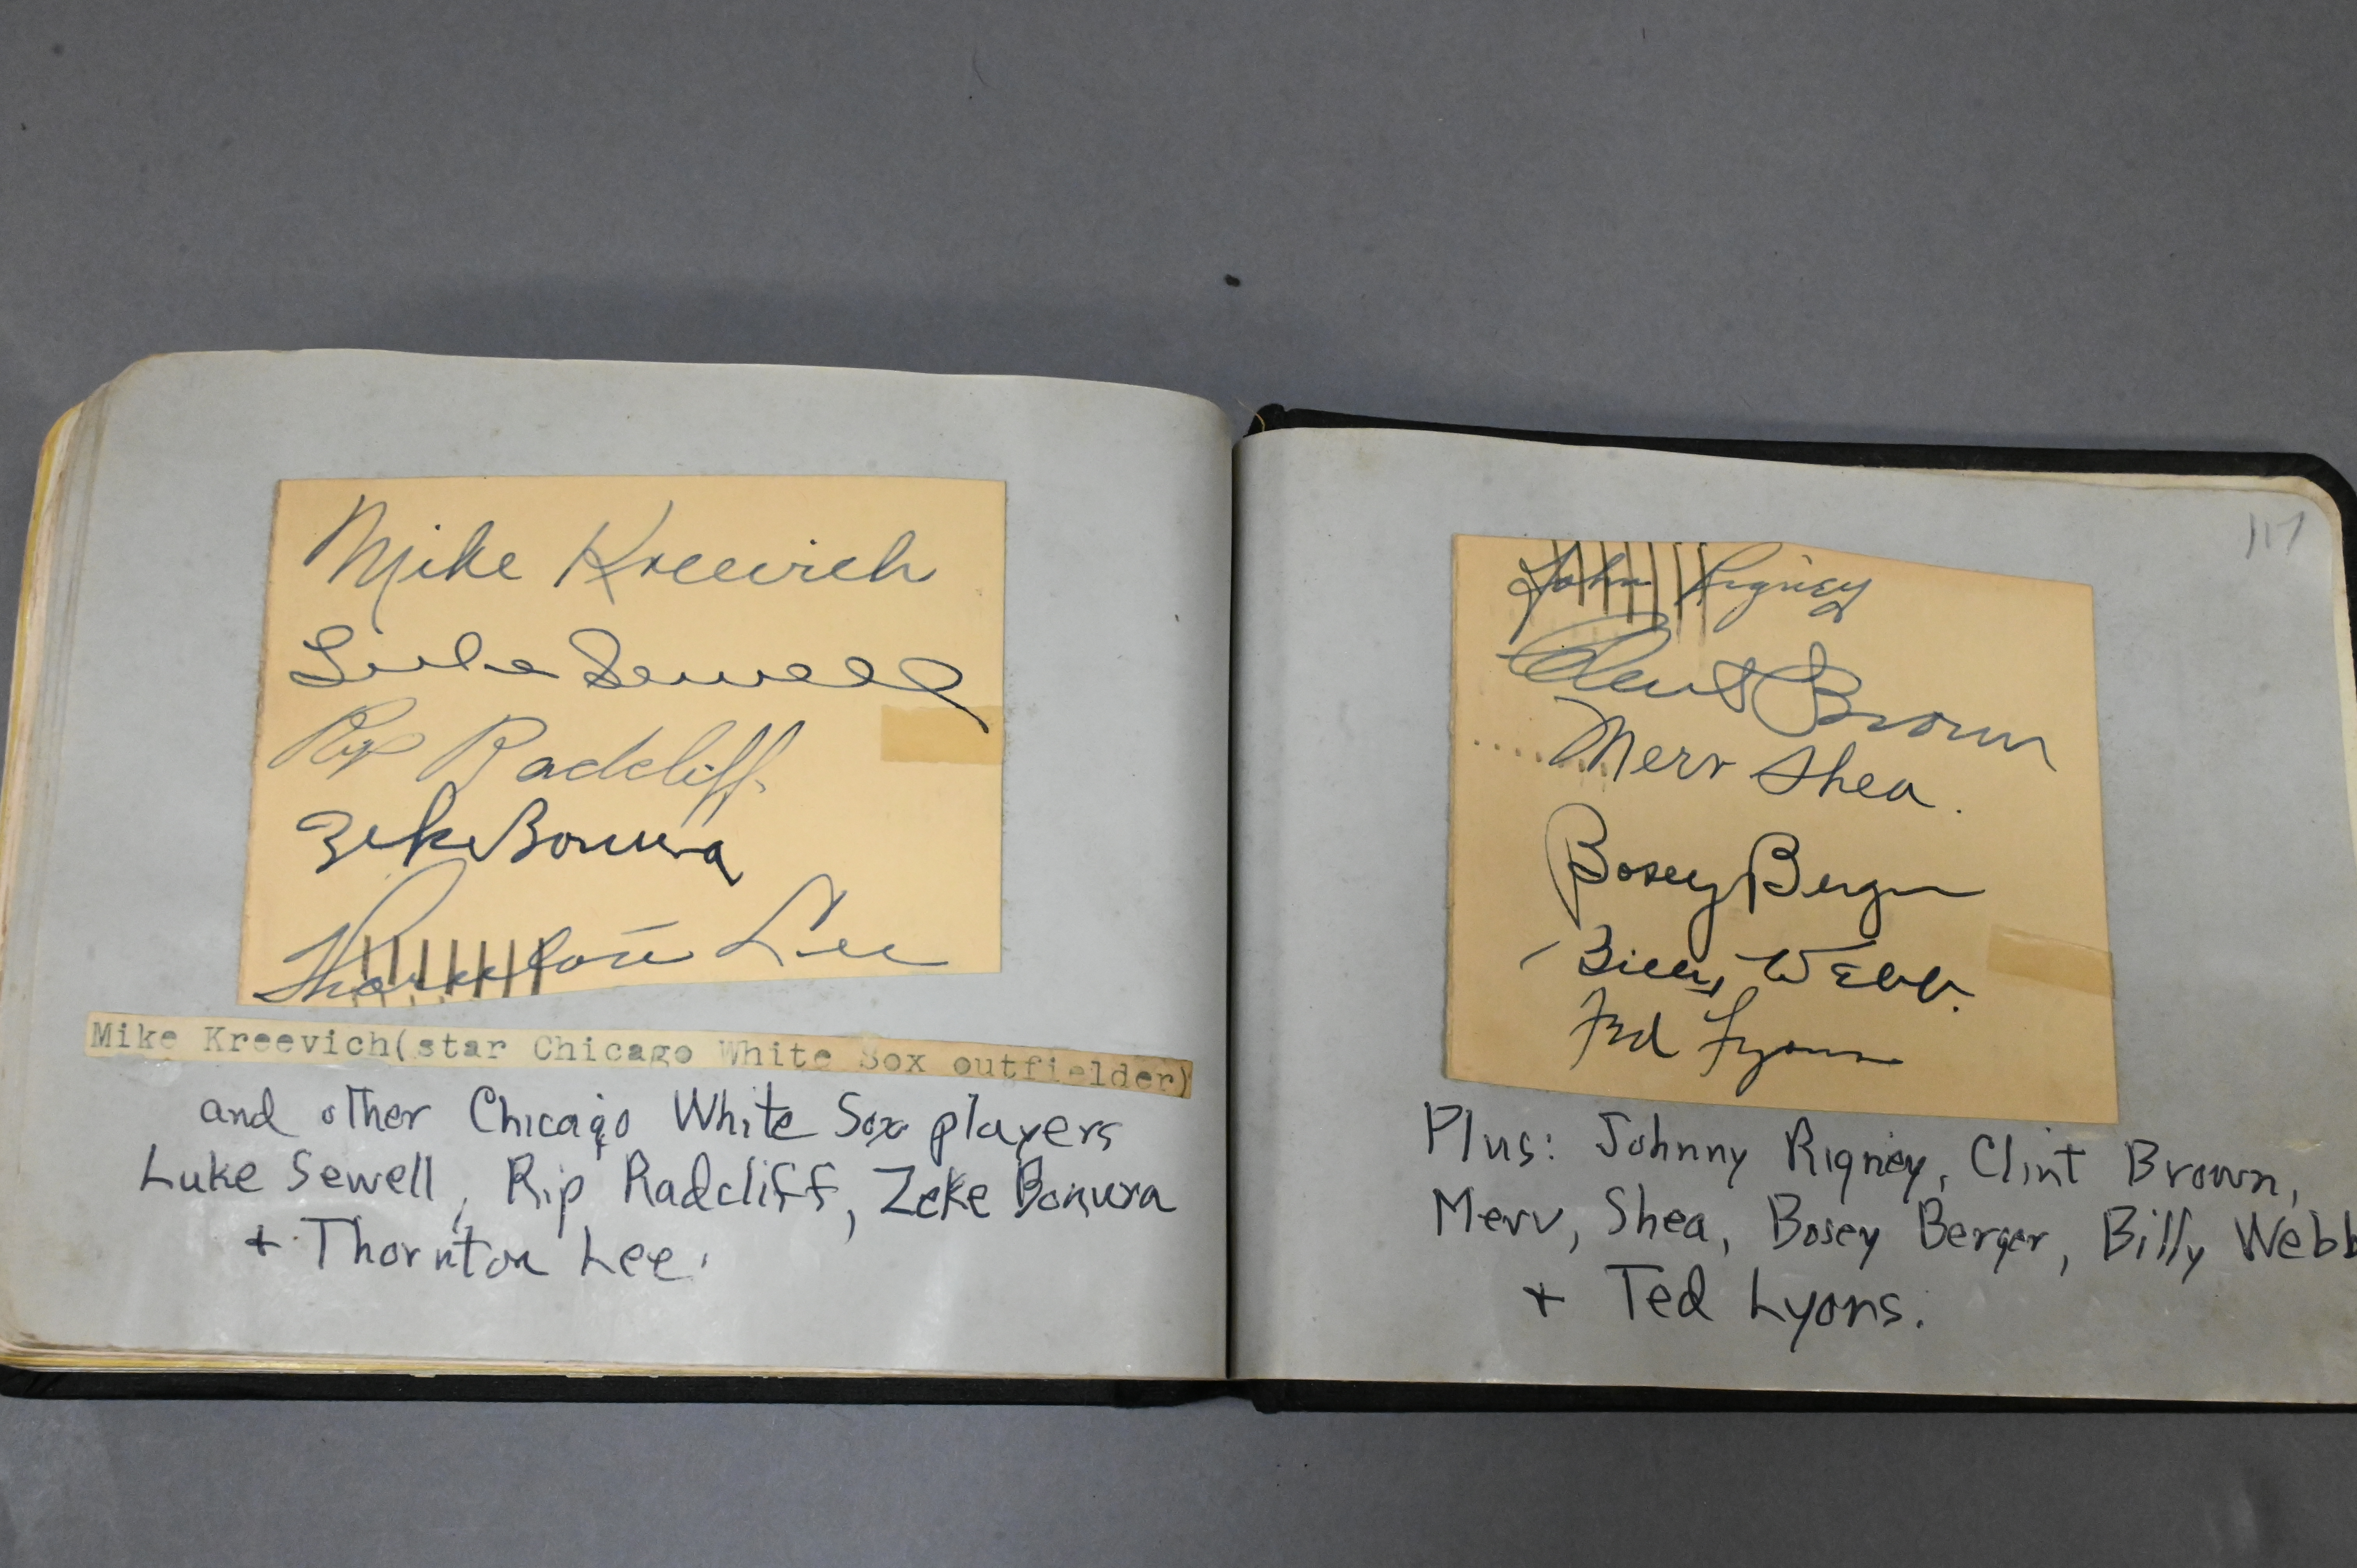 Mike Kreevich
Luke Sewell
Rip Radcliff
Zeke Bonura
Thornton Lee
Mike Kreevich(star Chicago White Sox outfielder)
and other Chicago White Sox players
Luke Sewell, Rip Radcliff, Zeke Bonura
+ Thornton Lee.
117
John Rigney
Clint Brown
Merv Shea.
Bosey Berger
Billy Webb.
Ted Lyons
Plus: Johnny Rigney, Clint Brown,
Merv, Shea, Bosey Berger, Billy Webb
+ Ted Lyons.